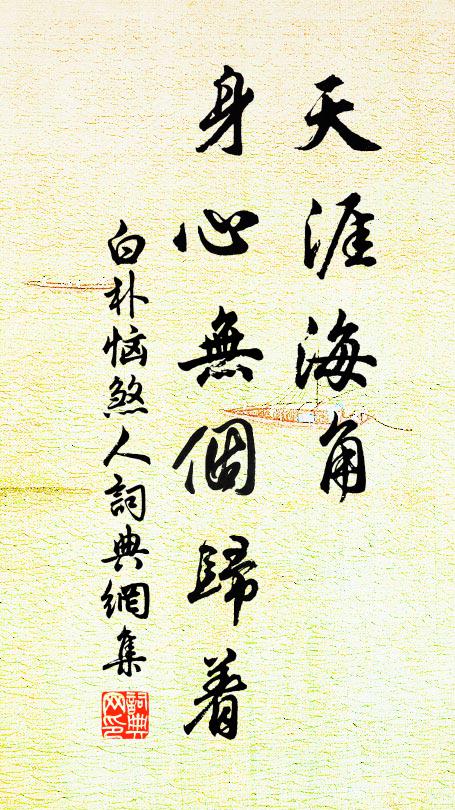 天涯海角
身心無個歸着
白朴恼煞人詞典網集
詞典
网印